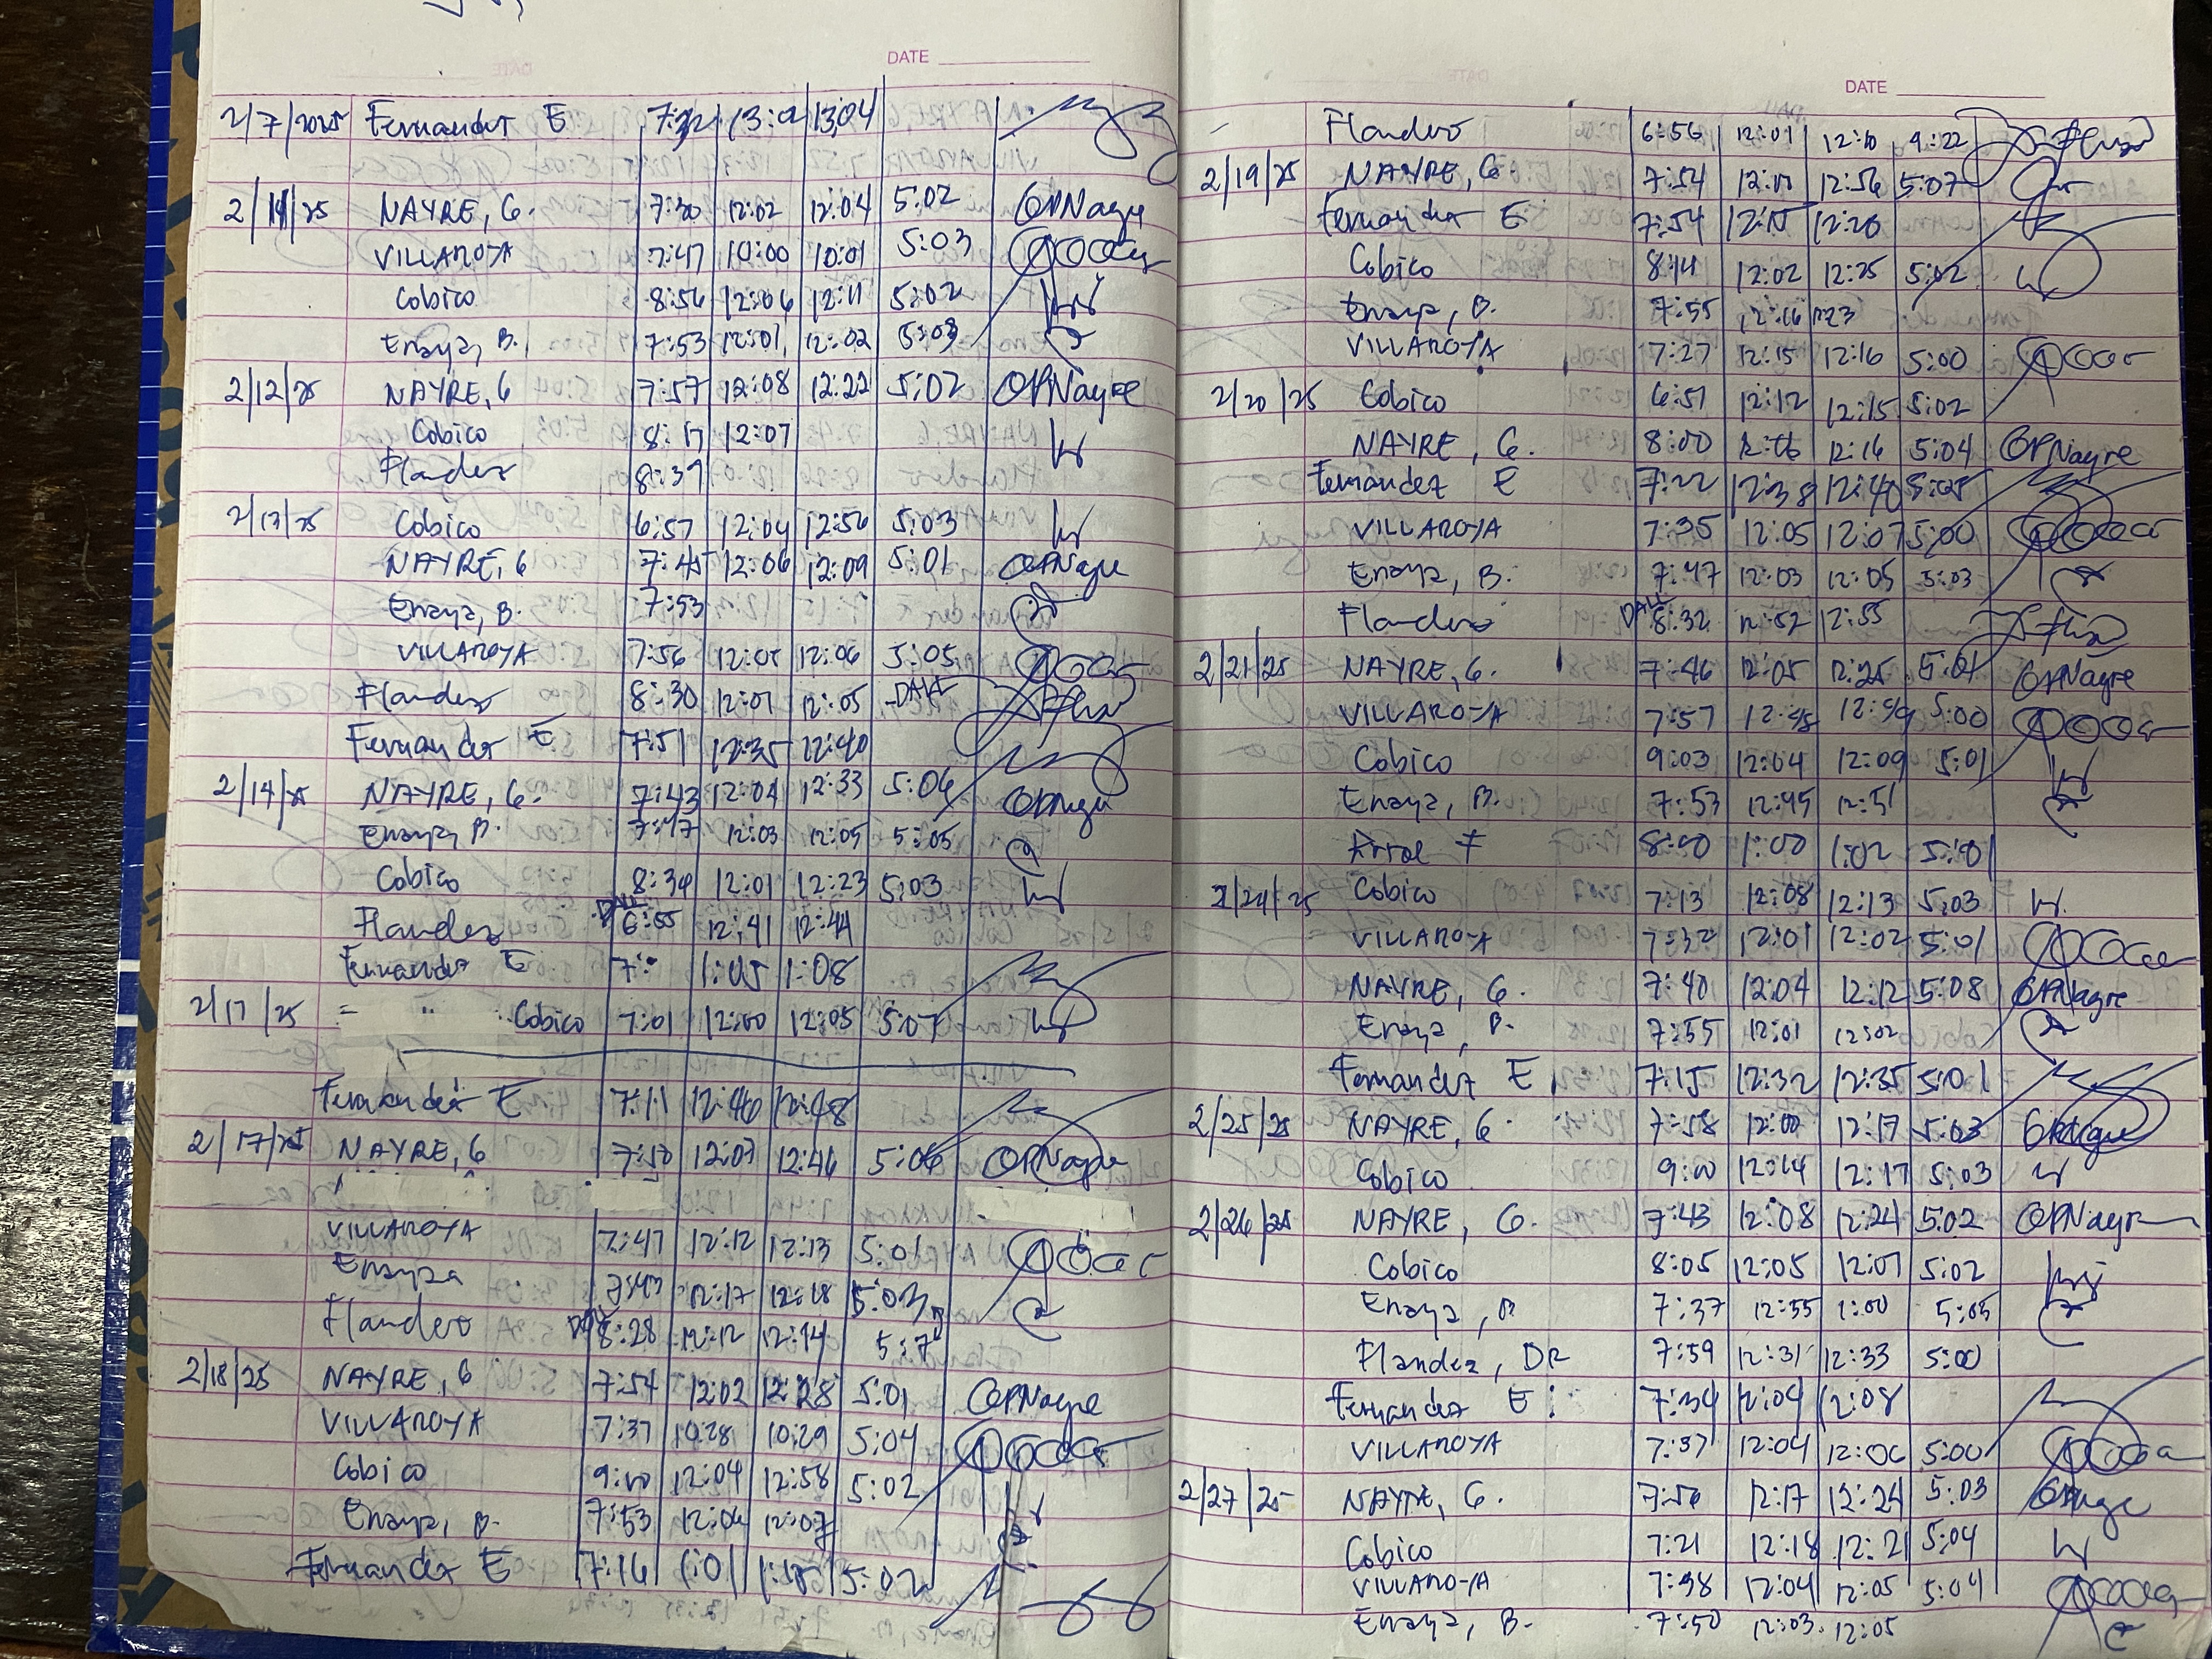 DATE
2/7/2025 Fernandez E 13:04
2/11/25 NAYRE, G. 7:30 12:02 12:04 5:02 GPNayre
VILLAROYA 7:47 10:00 10:01 5:03
Cobico 8:56 12:06 12:11 5:02
Enaya, B. 7:53 12:01 12:02 5:03
2/12/25 NAYRE, G 7:57 12:08 12:22 5:02 GPNayre
Cobico 8:17 12:07
Flandez 8:39
2/13/25 Cobico 6:57 12:04 12:56 5:03
NAYRE, G 7:45 12:06 12:09 5:01 GPNayre
Enaya, B. 7:53
VILLAROYA 7:56 12:05 12:06 5:05
Flandez 8:30 12:01 12:05 DALE
Fernandez E 7:51 12:35 12:40
2/14/25 NAYRE, G. 7:43 12:04 12:33 5:06
Enaya, B. 7:47 12:03 12:05 5:05
Cobico 8:34 12:01 12:23 5:03
Flandez DALE 6:55 12:41 12:44
Fernandez E 7: 1:05 1:08
2/17/25 = " Cobico 7:01 12:00 12:05 5:07
Fernandez E 7:11 12:46 12:48
2/17/25 NAYRE, G 7:50 12:03 12:46 5:06 GPNayre
VILLAROYA 7:47 12:12 12:13 5:01
Enaya 7:43 12:17 12:18 5:03
Flandez 8:28 12:12 12:14 5:7
2/18/25 NAYRE, G 7:54 12:02 12:28 5:01 GPNayre
VILLAROYA 7:37 10:28 10:29 5:04
Cobico 9:00 12:04 12:58 5:02
Enaya, B. 7:53 12:06 12:07
Fernandez E 7:16 1:01 5:02
DATE
Flandez 6:56 12:01 12:10 4:22
2/19/25 NAYRE, G. 7:54 12:00 12:56 5:07
Fernandez E. 7:54 12:15 12:20
Cobico 8:14 12:02 12:25 5:02
Enaya, B. 7:55 12:16 12:23
VILLAROYA 7:27 12:15 12:16 5:00
2/20/25 Cobico 6:51 12:12 12:15 5:02
NAYRE, G. 8:00 12:06 12:16 5:04 GPNayre
Fernandez E 7:22 12:38 12:40 5:05
VILLAROYA 7:35 12:05 12:07 5:00
Enaya, B. 7:47 12:03 12:05 5:03
Flandez DALE 8:32 12:52 12:55
2/21/25 NAYRE, G. 7:46 12:05 12:25 5:01 GPNayre
VILLAROYA 7:57 12:48 12:49 5:00
Cobico 9:03 12:04 12:09 5:01
Enaya, B. 7:53 12:45 12:51
F 8:00 1:00 1:02 5:01
2/24/25 Cobico 7:13 12:08 12:13 5:03
VILLAROYA 7:32 12:01 12:02 5:01
NAYRE, G. 7:40 12:04 12:12 5:08 GPNayre
Enaya, B. 7:55 12:01 12:02
Fernandez E 7:15 12:32 12:35 5:01
2/25/25 NAYRE, G. 7:58 12:00 12:17 5:03
Cobico 9:00 12:14 12:17 5:03
2/26/25 NAYRE, G. 7:43 12:08 12:24 5:02 GPNayre
Cobico 8:05 12:05 12:07 5:02
Enaya, B 7:37 12:55 1:00 5:05
Flandez, DR 7:59 12:31 12:33 5:00
Fernandez E. 7:34 12:04 12:08
VILLAROYA 7:37 12:04 12:06 5:00
2/27/25 NAYRE, G. 7:56 12:17 12:24 5:03
Cobico 7:21 12:18 12:21 5:04
VILLAROYA 7:38 12:04 12:05 5:04
Enaya, B. 7:50 12:03 12:05